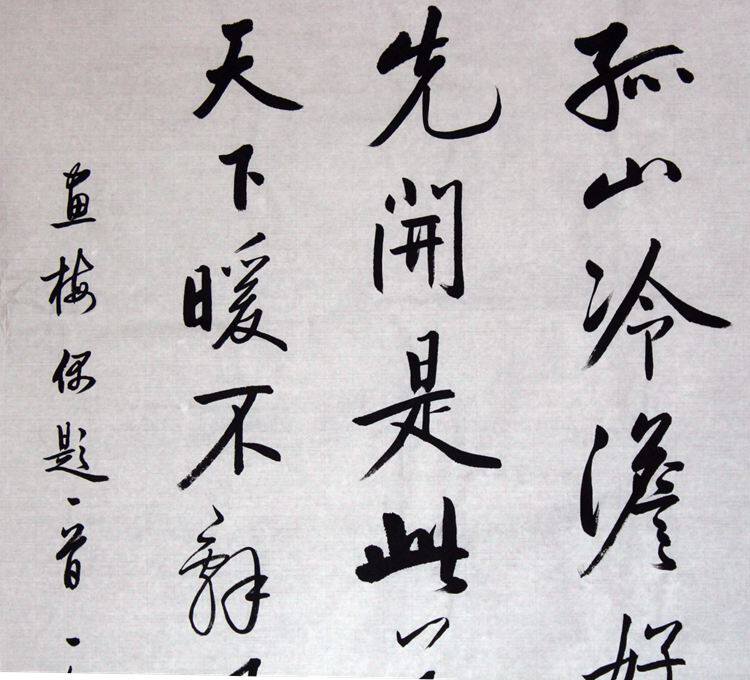 孤山冷澹好
先開是此花
天下暖不辭
畫梅偶題一首